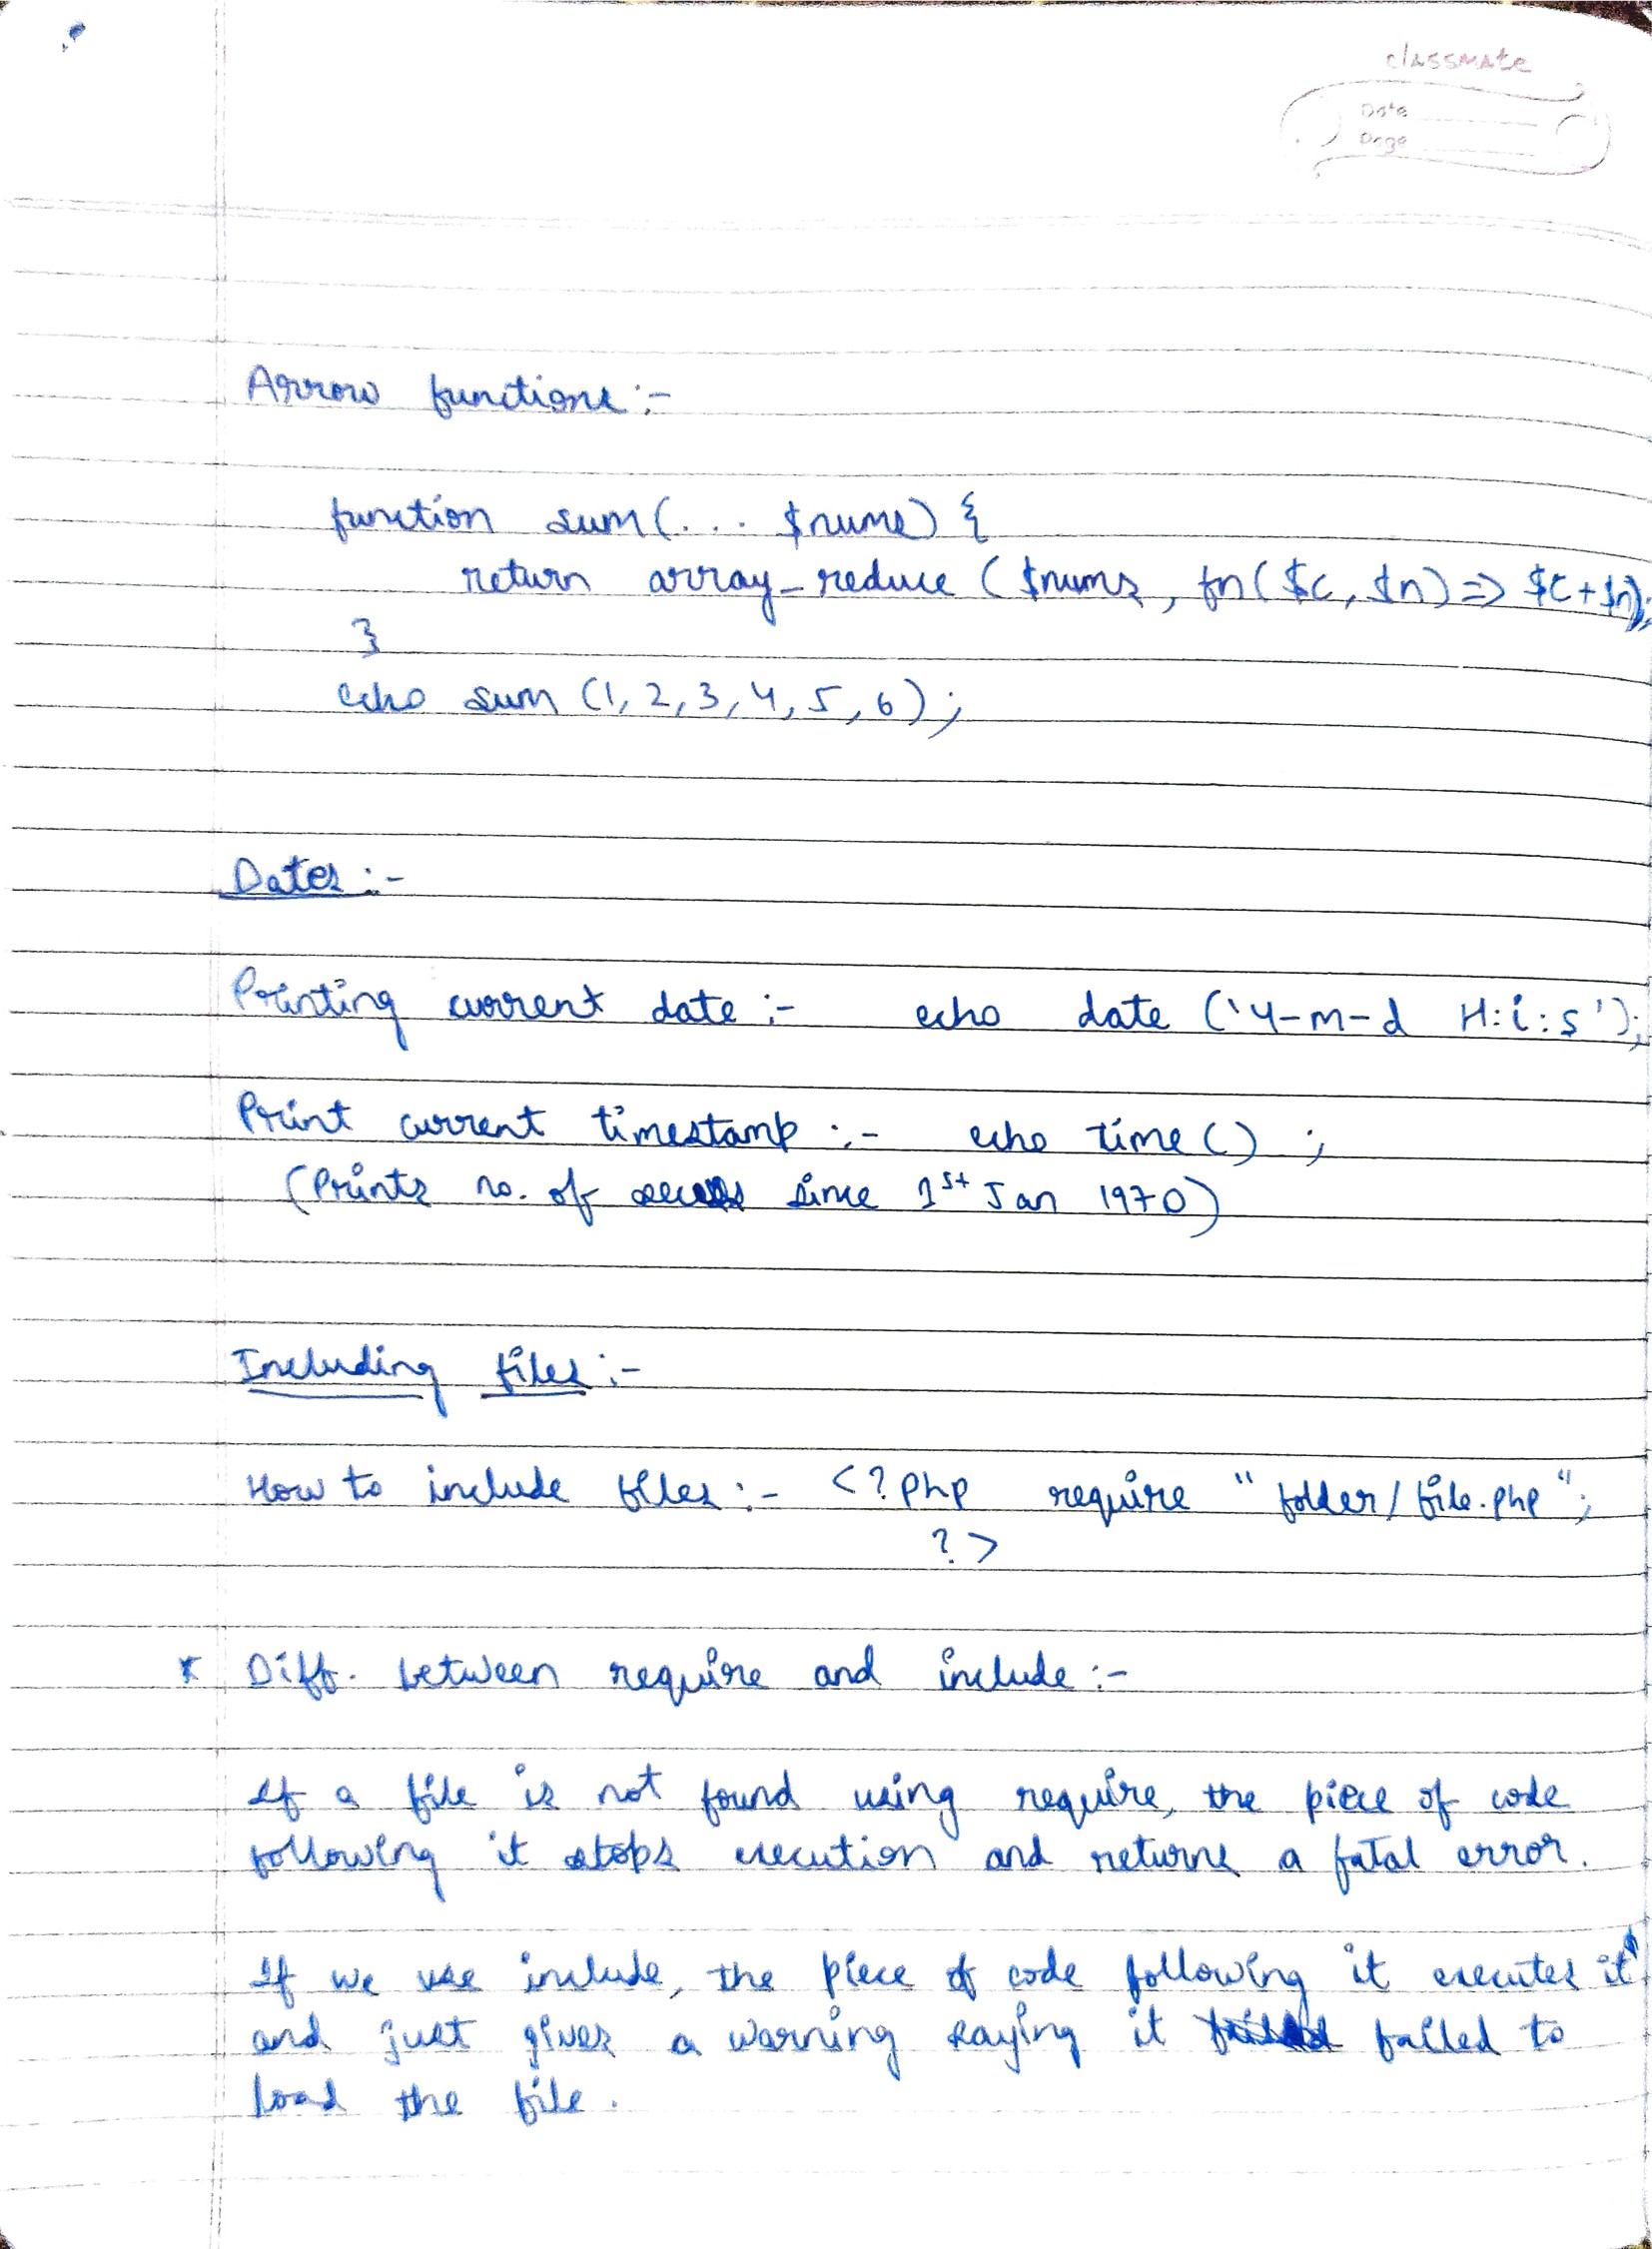 classmate
Date
Page
Arrow functions :-
function sum(... $nums) {
return array_reduce ($nums, fn($c, $n) => $c + $n);
}
echo sum (1, 2, 3, 4, 5, 6) ;
Dates :-
Printing current date :- echo date ('Y-m-d H:i:s');
Print current timestamp :- echo time() ;
(Prints no. of secs since 1st Jan 1970)
Including files :-
How to include files :- <?php require "folder/file.php";
?>
* Diff. between require and include :-
If a file is not found using require, the piece of code
following it stops execution and returns a fatal error.
If we use include, the piece of code following it executes it
and just gives a warning saying it failed to
load the file.